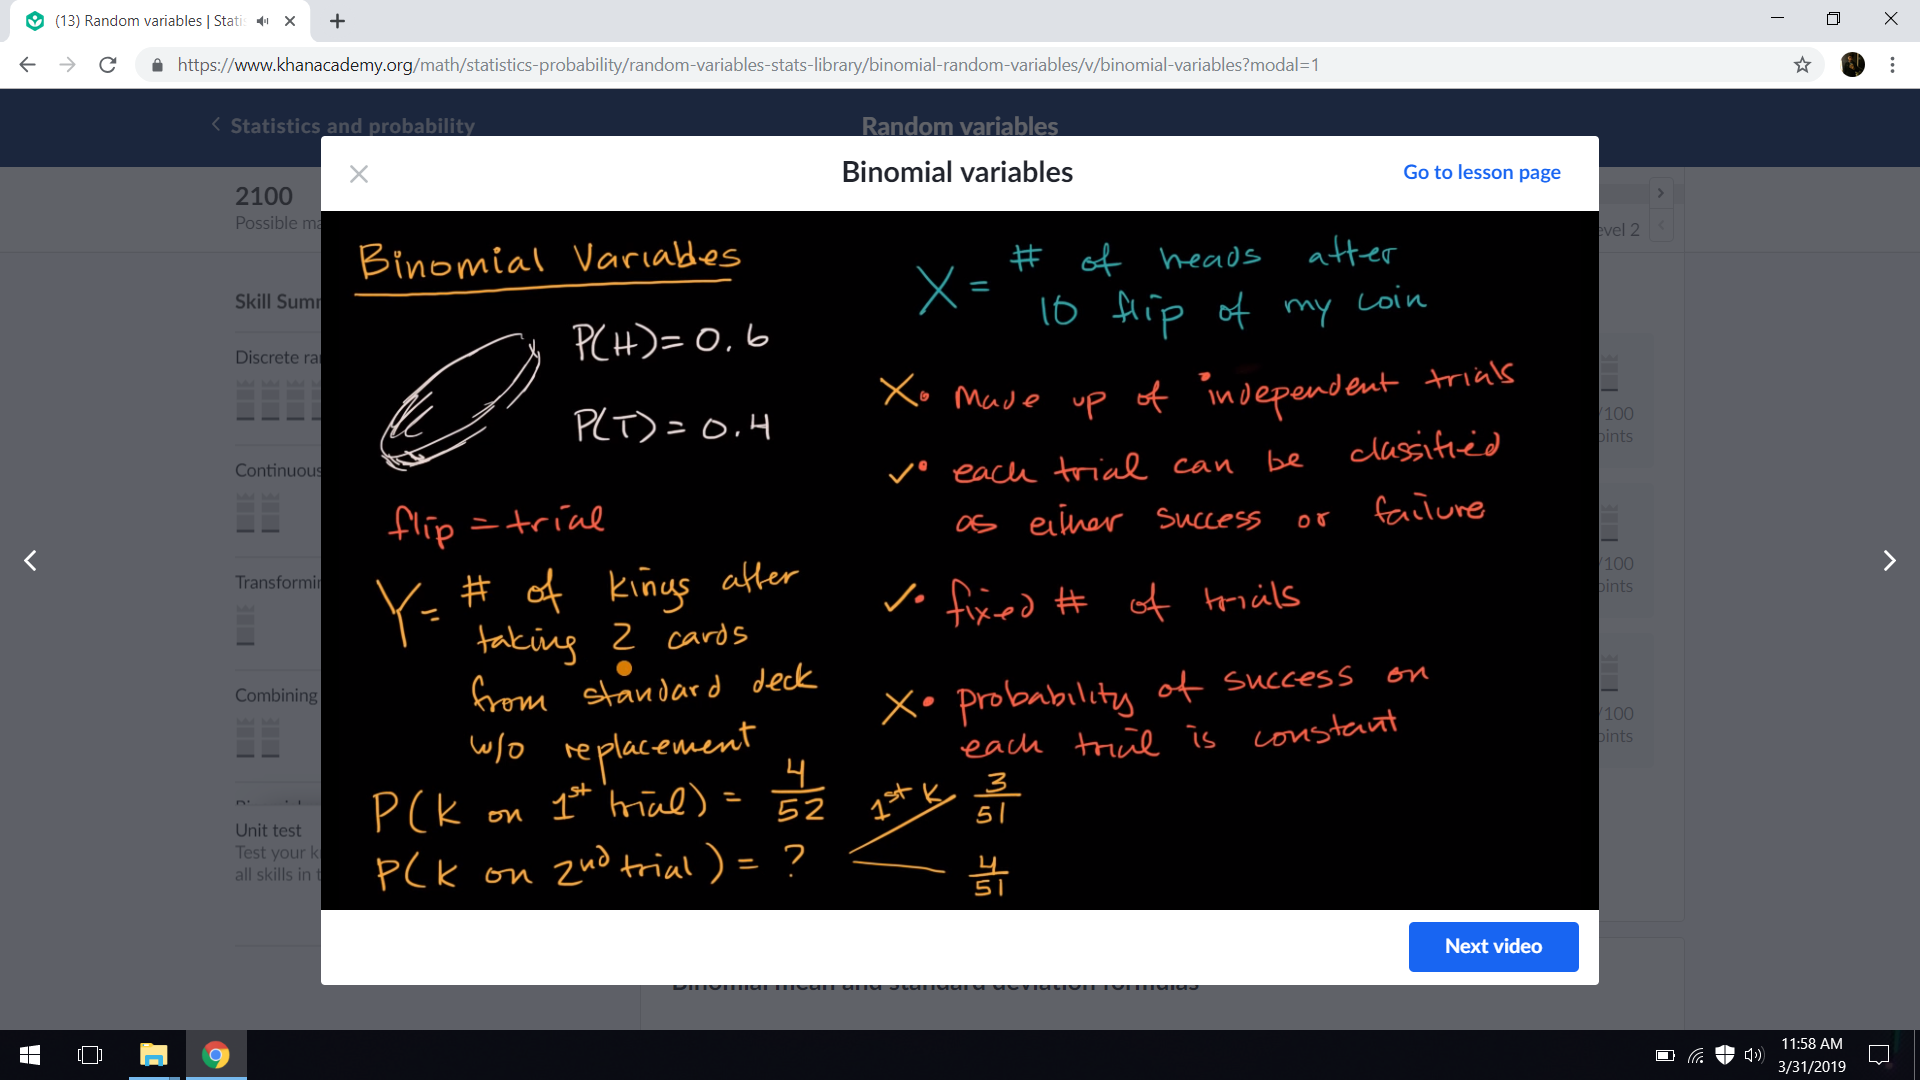 (13) Random variables | Stati
https://www.khanacademy.org/math/statistics-probability/random-variables-stats-library/binomial-random-variables/v/binomial-variables?modal=1
Statistics and probability
Random variables
2100
Possible ma
evel 2
Skill Summ
Discrete ra
Continuous
Transformin
Combining
Unit test
Test your k
all skills in t
/100
oints
/100
oints
/100
oints
Binomial variables
Go to lesson page
Binomial Variables
P(H)=0.6
P(T)=0.4
flip = trial
Y= # of kings after
taking 2 cards
from standard deck
w/o replacement
P(K on 1st trial) = 4/52
P(K on 2nd trial) = ?
1st K 3/51
4/51
X = # of heads after
10 flip of my coin
X • Made up of independent trials
✓ • each trial can be classified
as either success or failure
✓ • fixed # of trials
X • probability of success on
each trial is constant
Next video
Binomial mean and standard deviation formulas
11:58 AM
3/31/2019